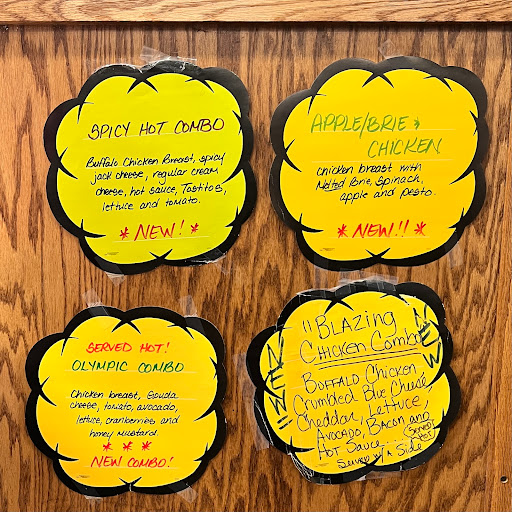 SPICY HOT COMBO
Buffalo Chicken Breast, spicy
jack cheese, regular cream
cheese, hot sauce, Tostito's,
lettuce and tomato.
* NEW! *
APPLE/BRIE &
CHICKEN
chicken breast with
Melted Brie, Spinach,
apple and pesto.
* NEW!! *
SERVED HOT!
OLYMPIC COMBO
Chicken breast, Gouda
cheese, tomato, avocado,
lettuce, cranberries and
honey mustard.
* * *
NEW COMBO!
"BLAZING
CHICKEN Combo
NEW
NEW
BUFFALO Chicken,
Crumbled Blue Cheese
Cheddar, Lettuce,
Avocado, Bacon and
Hot Sauce
Served
Served w/ A Side